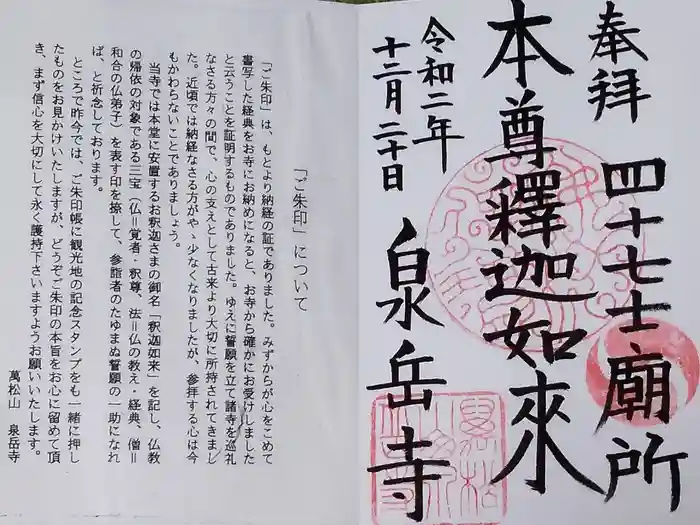 奉拝 四十七士廟所
本尊釋迦如來
令和二年
十二月二十日
泉岳寺
「ご朱印」について
「ご朱印」は、もとより納経の証でありました。みずからが心をこめて
書写した経典をお寺にお納めになると、お寺から確かにお受けしました
と云うことを証明するものでありました。ゆえに誓願を立て諸寺を巡礼
なさる方々の間で、心の支えとして古来より大切に所持されてきまし
た。近頃では納経なさる方がや丶少なくなりましたが、参拝する心は今
もかわらないことでありましょう。
当寺では本堂に安置するお釈迦さまの御名「釈迦如来」を記し、仏教
の帰依の対象である三宝（仏＝覚者・釈尊、法＝仏の教え・経典、僧＝
和合の仏弟子）を表す印を捺して、参詣者のたゆまぬ誓願の一助になれ
ば、と祈念しております。
ところで昨今では、ご朱印帳に観光地の記念スタンプをも一緒に押し
たものをお見かけいたしますが、どうぞご朱印の本旨をお心に留めて頂
き、まず信心を大切にして永く護持下さいますようお願いいたします。
萬松山 泉岳寺